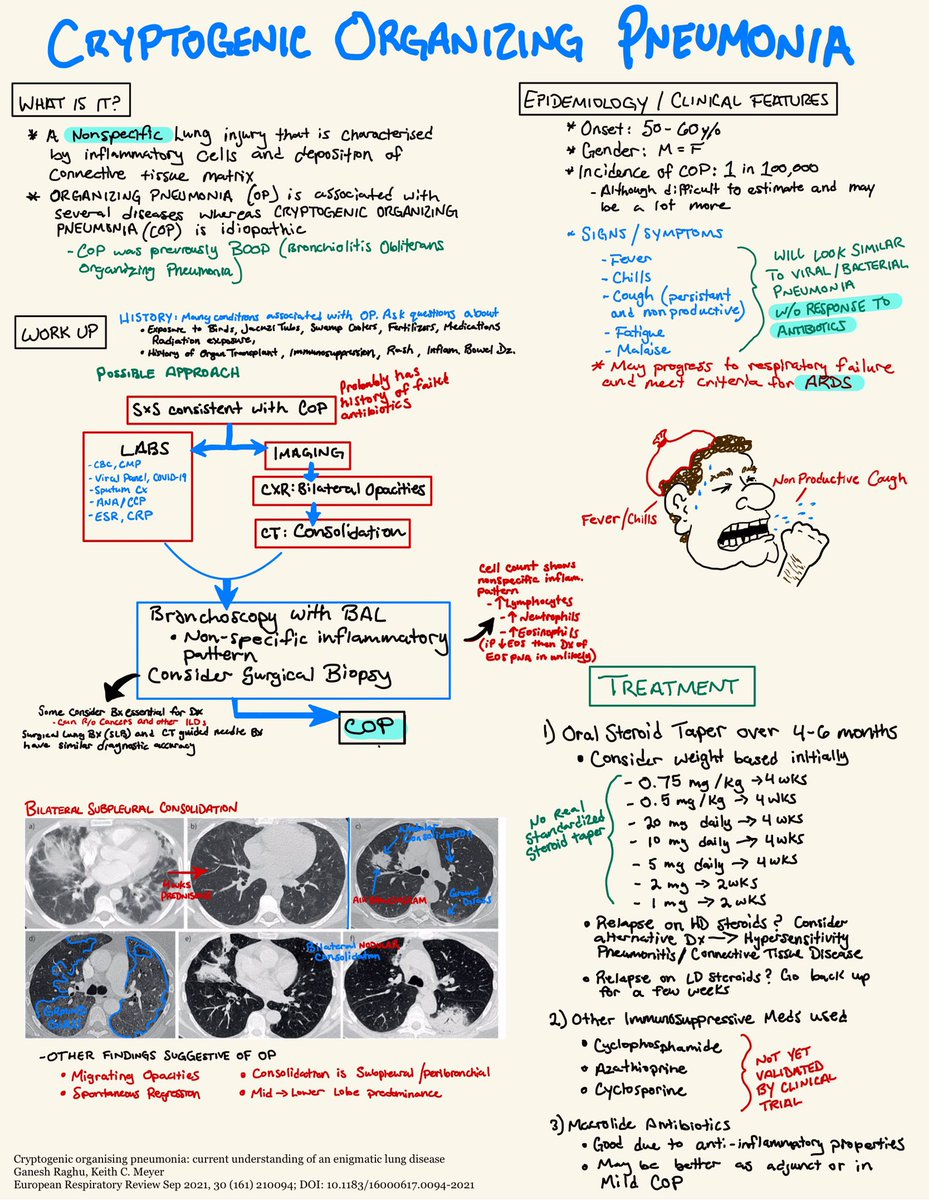 CRYPTOGENIC ORGANIZING PNEUMONIA
WHAT IS IT?
* A Nonspecific Lung injury that is characterised
by inflammatory cells and deposition of
Connective tissue matrix
* ORGANIZING PNEUMONIA (OP) is associated with
several diseases whereas CRYPTOGENIC ORGANIZING
PNEUMONIA (COP) is idiopathic
- COP was previously BOOP (Bronchiolitis Obliterans
Organizing Pneumonia)
EPIDEMIOLOGY / CLINICAL FEATURES
* Onset: 50-60 y/o
* Gender: M = F
* Incidence of COP: 1 in 100,000
- Although difficult to estimate and may
be a lot more
* SIGNS / SYMPTOMS
- Fever
- Chills
- Cough (persistant
and non productive)
- Fatigue
- Malaise
WILL LOOK SIMILAR
TO VIRAL / BACTERIAL
PNEUMONIA
W/O RESPONSE TO
ANTIBIOTICS
* May progress to respiratory failure
and meet criteria for ARDS
WORK UP
HISTORY: Many conditions associated with OP. Ask questions about
• Exposure to Birds, Jacuzi Tubs, Swamp Coolers, Fertilizers, Medications
Radiation exposure,
• History of Organ Transplant, Immunosupression, Rash, Inflam. Bowel Dz.
POSSIBLE APPROACH
SxS consistent with COP
Probably has
history of failed
antibiotics
LABS
- CBC, CMP
- Viral Panel, COVID-19
- Sputum Cx
- ANA/CCP
- ESR, CRP
IMAGING
CXR: Bilateral Opacities
CT: Consolidation
Branchoscopy with BAL
• Non-specific inflammatory
pattern
Consider Surgical Biopsy
Cell count shows
nonspecific inflam.
pattern
- ↑Lymphocytes
- ↑Neutrophils
- ↑Eosinophils
(if ↓EOS then Dx of
EOS PNA in unlikely)
Some Consider Bx essential for Dx
- Can R/o Cancers and other ILDs
Surgical Lung Bx (SLB) and CT guided needle Bx
have similar diagnostic accuracy
COP
Fever/Chills
Non Productive Cough
BILATERAL SUBPLEURAL CONSOLIDATION
a)
b)
c)
4 WKS
PREDNISONE
Nodular
Consolidation
AIR BRONCHOGRAM
Ground
Glass
d)
e)
f)
GROUND
GLASS
Bilateral NODULAR
Consolidation
- OTHER FINDINGS SUGGESTIVE OF OP
• Migrating Opacities
• Spontaneous Regression
• Consolidation is Subpleural / peribronchial
• Mid → Lower Lobe predominance
TREATMENT
1) Oral Steroid Taper over 4-6 months
• Consider weight based initially
- 0.75 mg/kg → 4 wks
- 0.5 mg/kg → 4 wks
- 20 mg daily → 4 wks
- 10 mg daily → 4 wks
- 5 mg daily → 4 wks
- 2 mg → 2 wks
- 1 mg → 2 wks
No Real
Standardized
Steroid taper
• Relapse on HD steroids? Consider
alternative Dx → Hypersensitivity
Pneumonitis / Connective Tissue Disease
• Relapse on LD steroids? Go back up
for a few weeks
2) Other Immunosuppressive Meds used
• Cyclophosphamide
• Azathioprine
• Cyclosporine
NOT YET
VALIDATED
BY CLINICAL
TRIAL
3) Macrolide Antibiotics
• Good due to anti-inflammatory properties
• May be better as adjunct or in
Mild COP
Cryptogenic organising pneumonia: current understanding of an enigmatic lung disease
Ganesh Raghu, Keith C. Meyer
European Respiratory Review Sep 2021, 30 (161) 210094; DOI: 10.1183/16000617.0094-2021